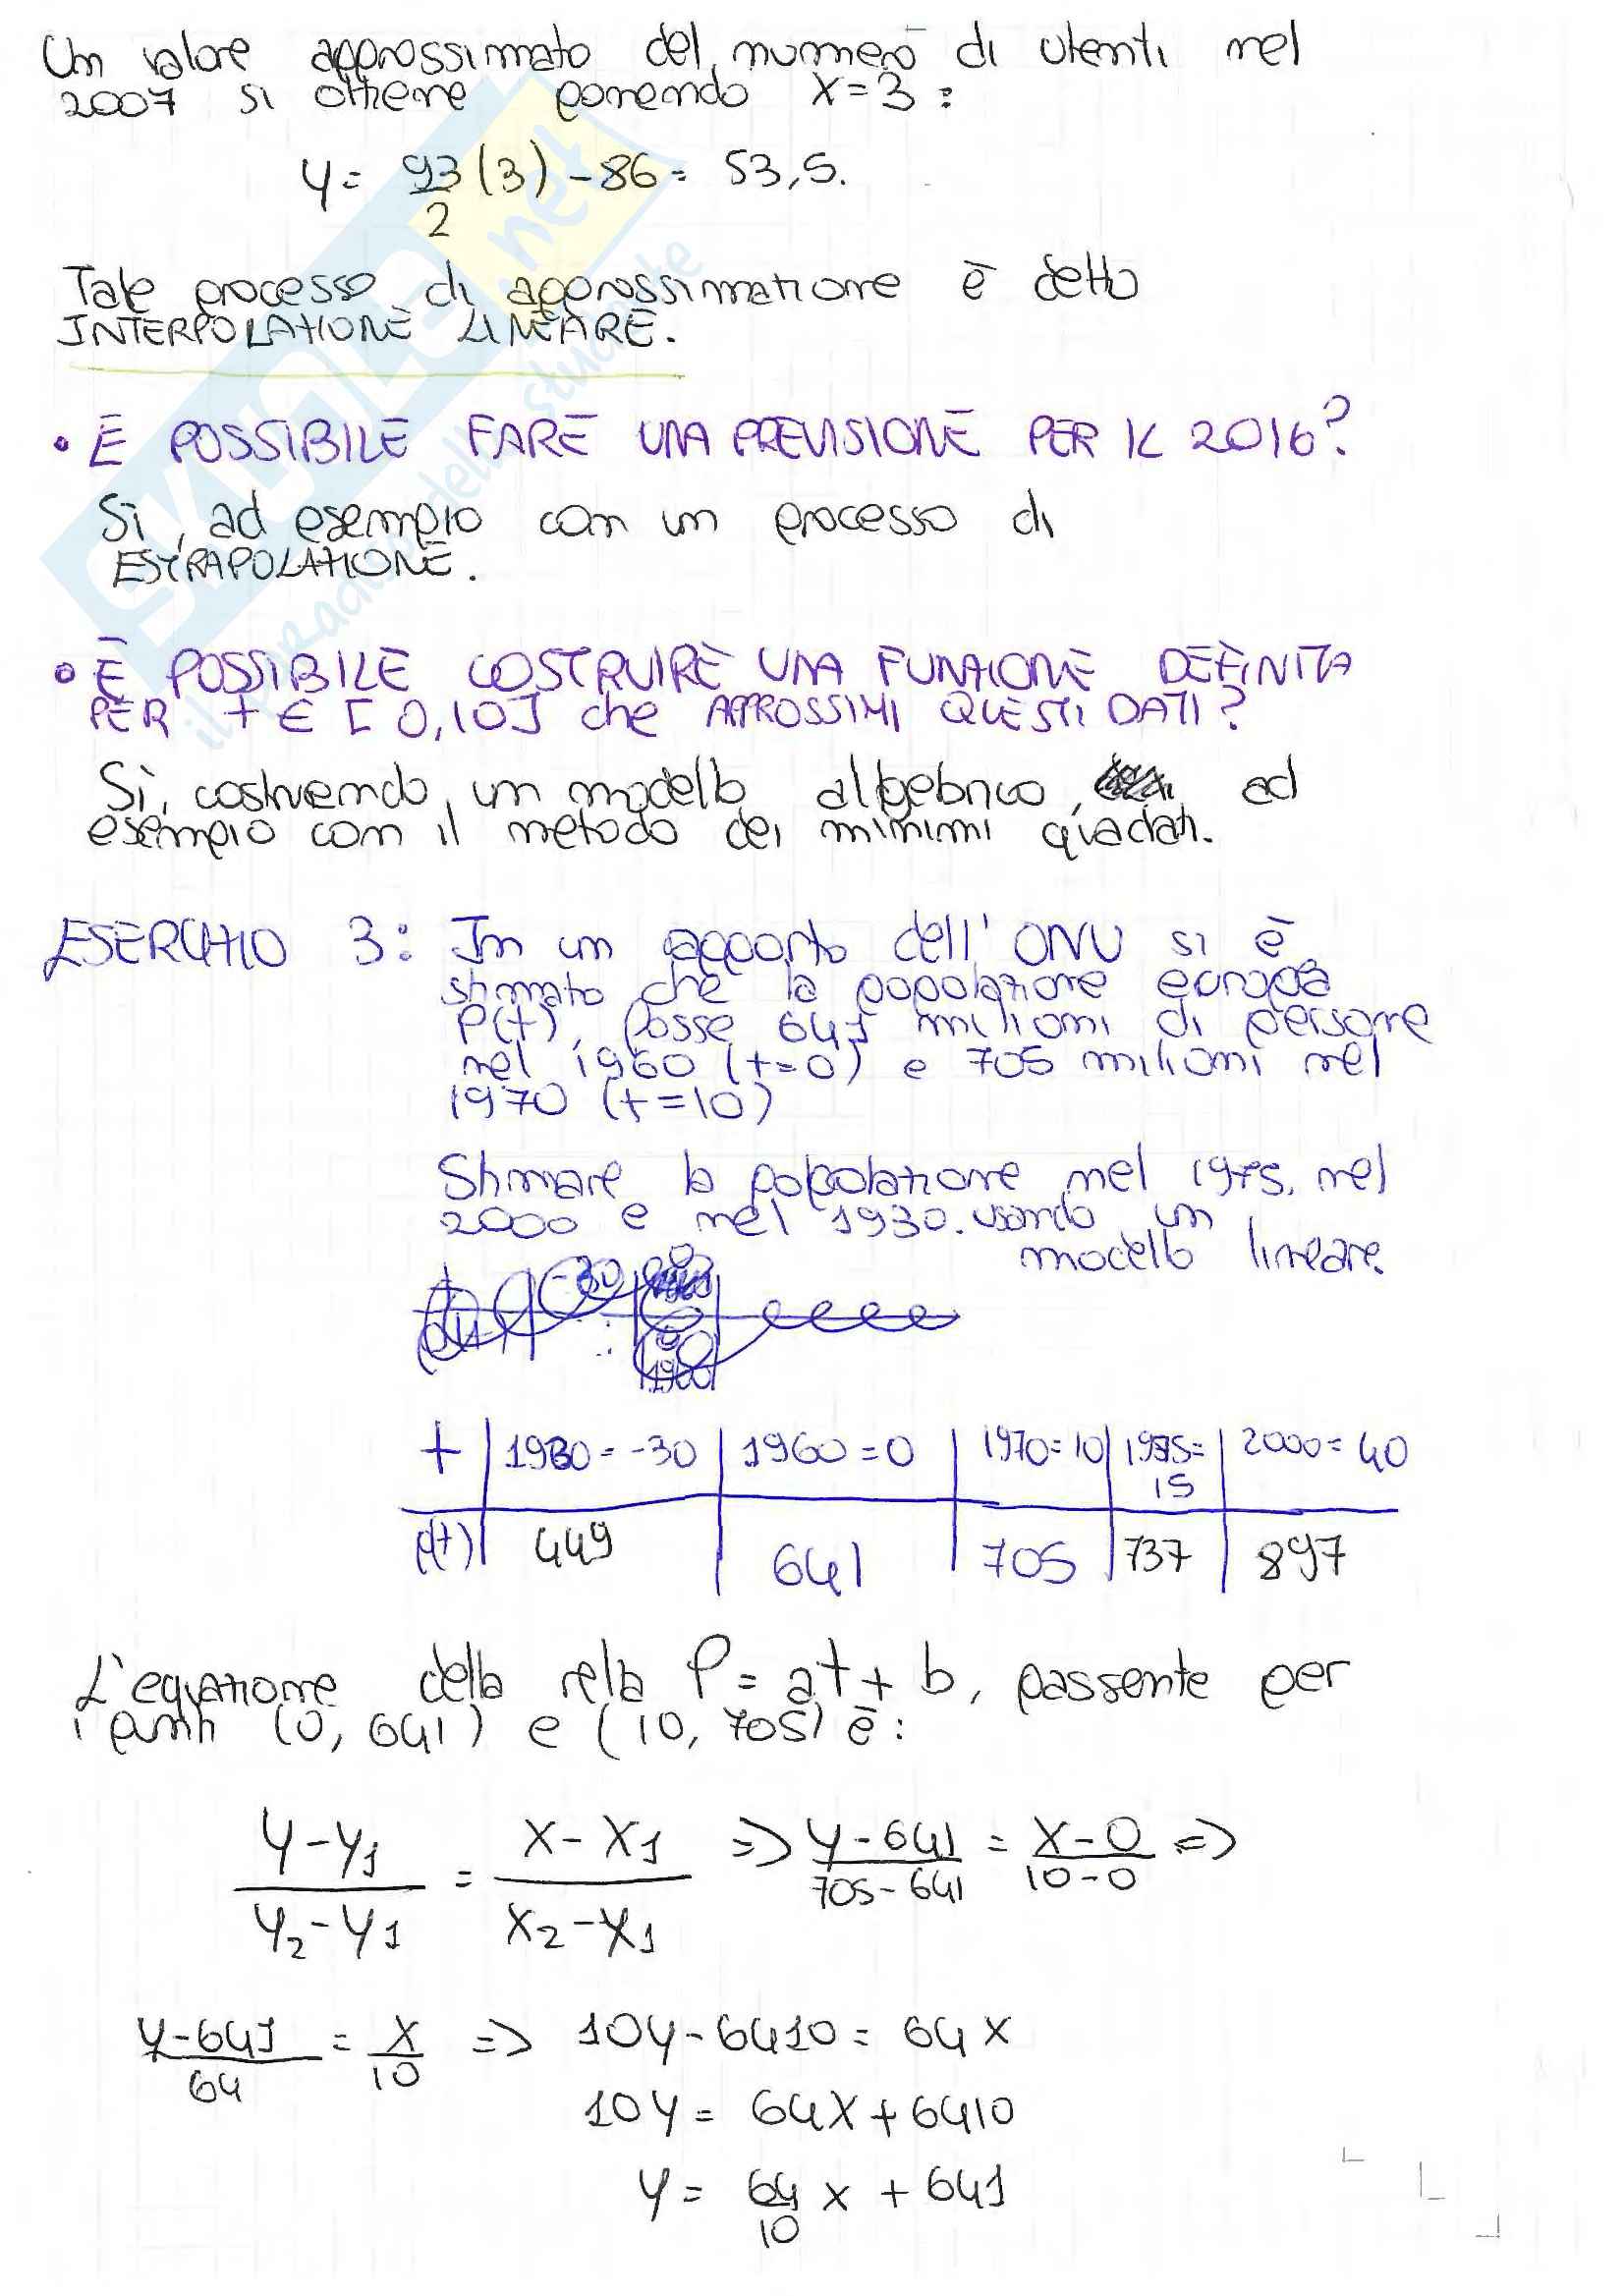 Un valore approssimato del numero di utenti nel
2007 si ottiene ponendo x=3:
y = 93/2 (3) - 86 = 53,5.
Tale processo di approssimazione è detto
INTERPOLAZIONE LINEARE.
• È POSSIBILE FARE UNA PREVISIONE PER IL 2016?
Sì, ad esempio con un processo di
ESTRAPOLAZIONE.
• È POSSIBILE COSTRUIRE UNA FUNZIONE DEFINITA
PER t ∈ [0,10] che APPROSSIMI QUESTI DATI?
Sì, costruendo un modello algebrico, ad
esempio con il metodo dei minimi quadrati.
ESERCIZIO 3: In un rapporto dell'ONU si è
stimato che la popolazione europea
P(t), fosse 641 milioni di persone
nel 1960 (t=0) e 705 milioni nel
1970 (t=10)
Stimare la popolazione nel 1975, nel
2000 e nel 1930. usando un
modello lineare.
t | 1930 = -30 | 1960 = 0 | 1970 = 10 | 1975 = 15 | 2000 = 40
p(t) | 449 | 641 | 705 | 737 | 897
L'equazione della retta P = at + b, passante per
i punti (0, 641) e (10, 705) è:
y-y1/y2-y1 = x-x1/x2-x1 => y-641/705-641 = x-0/10-0 =>
y-641/64 = x/10 => 10y-6410 = 64x
10y = 64x+6410
y = 64/10 x + 641
SKUOLA.net
il paradiso dello studente